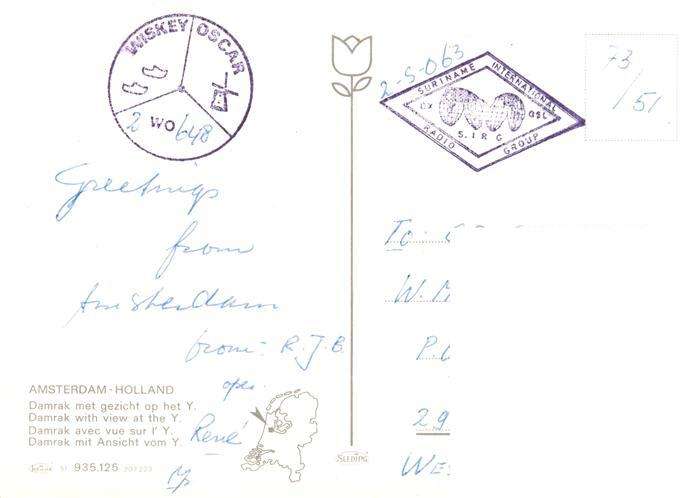 WISKEY OSCAR
2 WO 648
Greetings
from
Amsterdam
from: R.J.B.
oper.
René
AMSTERDAM - HOLLAND
Damrak met gezicht op het Y.
Damrak with view at the Y.
Damrak avec vue sur l' Y.
Damrak mit Ansicht vom Y.
51 935.125
SLEDING
2-S-063
SURINAME INTERNATIONAL
DX QSL
S.I.R.G.
RADIO GROUP
73/51
To:
W.
P.
29
WE: